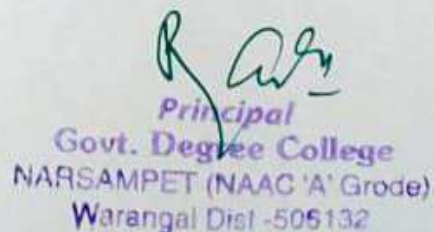 Principal
Govt. Degree College
NARSAMPET (NAAC 'A' Grode)
Warangal Dist -506132